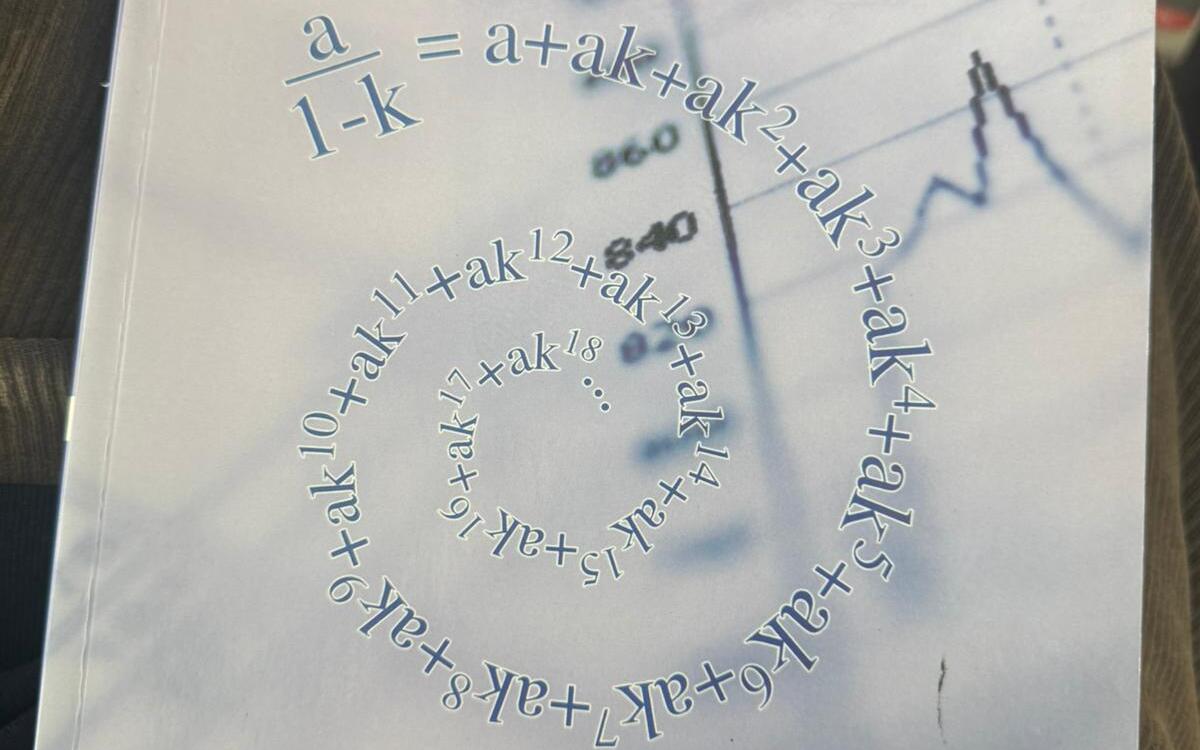 a/1-k = a+ak+ak²+ak³+ak⁴+ak⁵+ak⁶+ak⁷+ak⁸+ak⁹+ak¹⁰+ak¹¹+ak¹²+ak¹³+ak¹⁴+ak¹⁵+ak¹⁶+ak¹⁷+ak¹⁸...
860
840